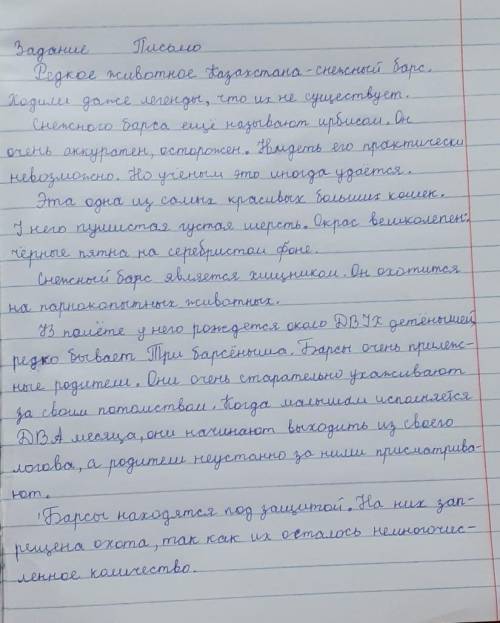 Задание Письмо
Редкое животное Казахстана - снежный барс.
Ходили даже легенды, что их не существует.
Снежного барса ещё называют ирбисом. Он
очень аккуратен, осторожен. Увидеть его практически
невозможно. Но учёным это иногда удаётся.
Эта одна из самых красивых больших кошек.
У него пушистая густая шерсть. Окрас великолепен:
чёрные пятна на серебристом фоне.
Снежный барс является хищником. Он охотится
на парнокопытных животных.
В помёте у него рождется около ДВУХ детёнышей,
редко бывает Три барсёныша. Барсы очень прилеж-
ные родители. Они очень старательно ухаживают
за своим потомством. Когда малышам исполняется
ДВА месяца, они начинают выходить из своего
логова, а родители неустанно за ними присматрива-
ют.
Барсы находятся под защитой. На них зап-
рещена охота, так как их осталось немногочис-
ленное количество.